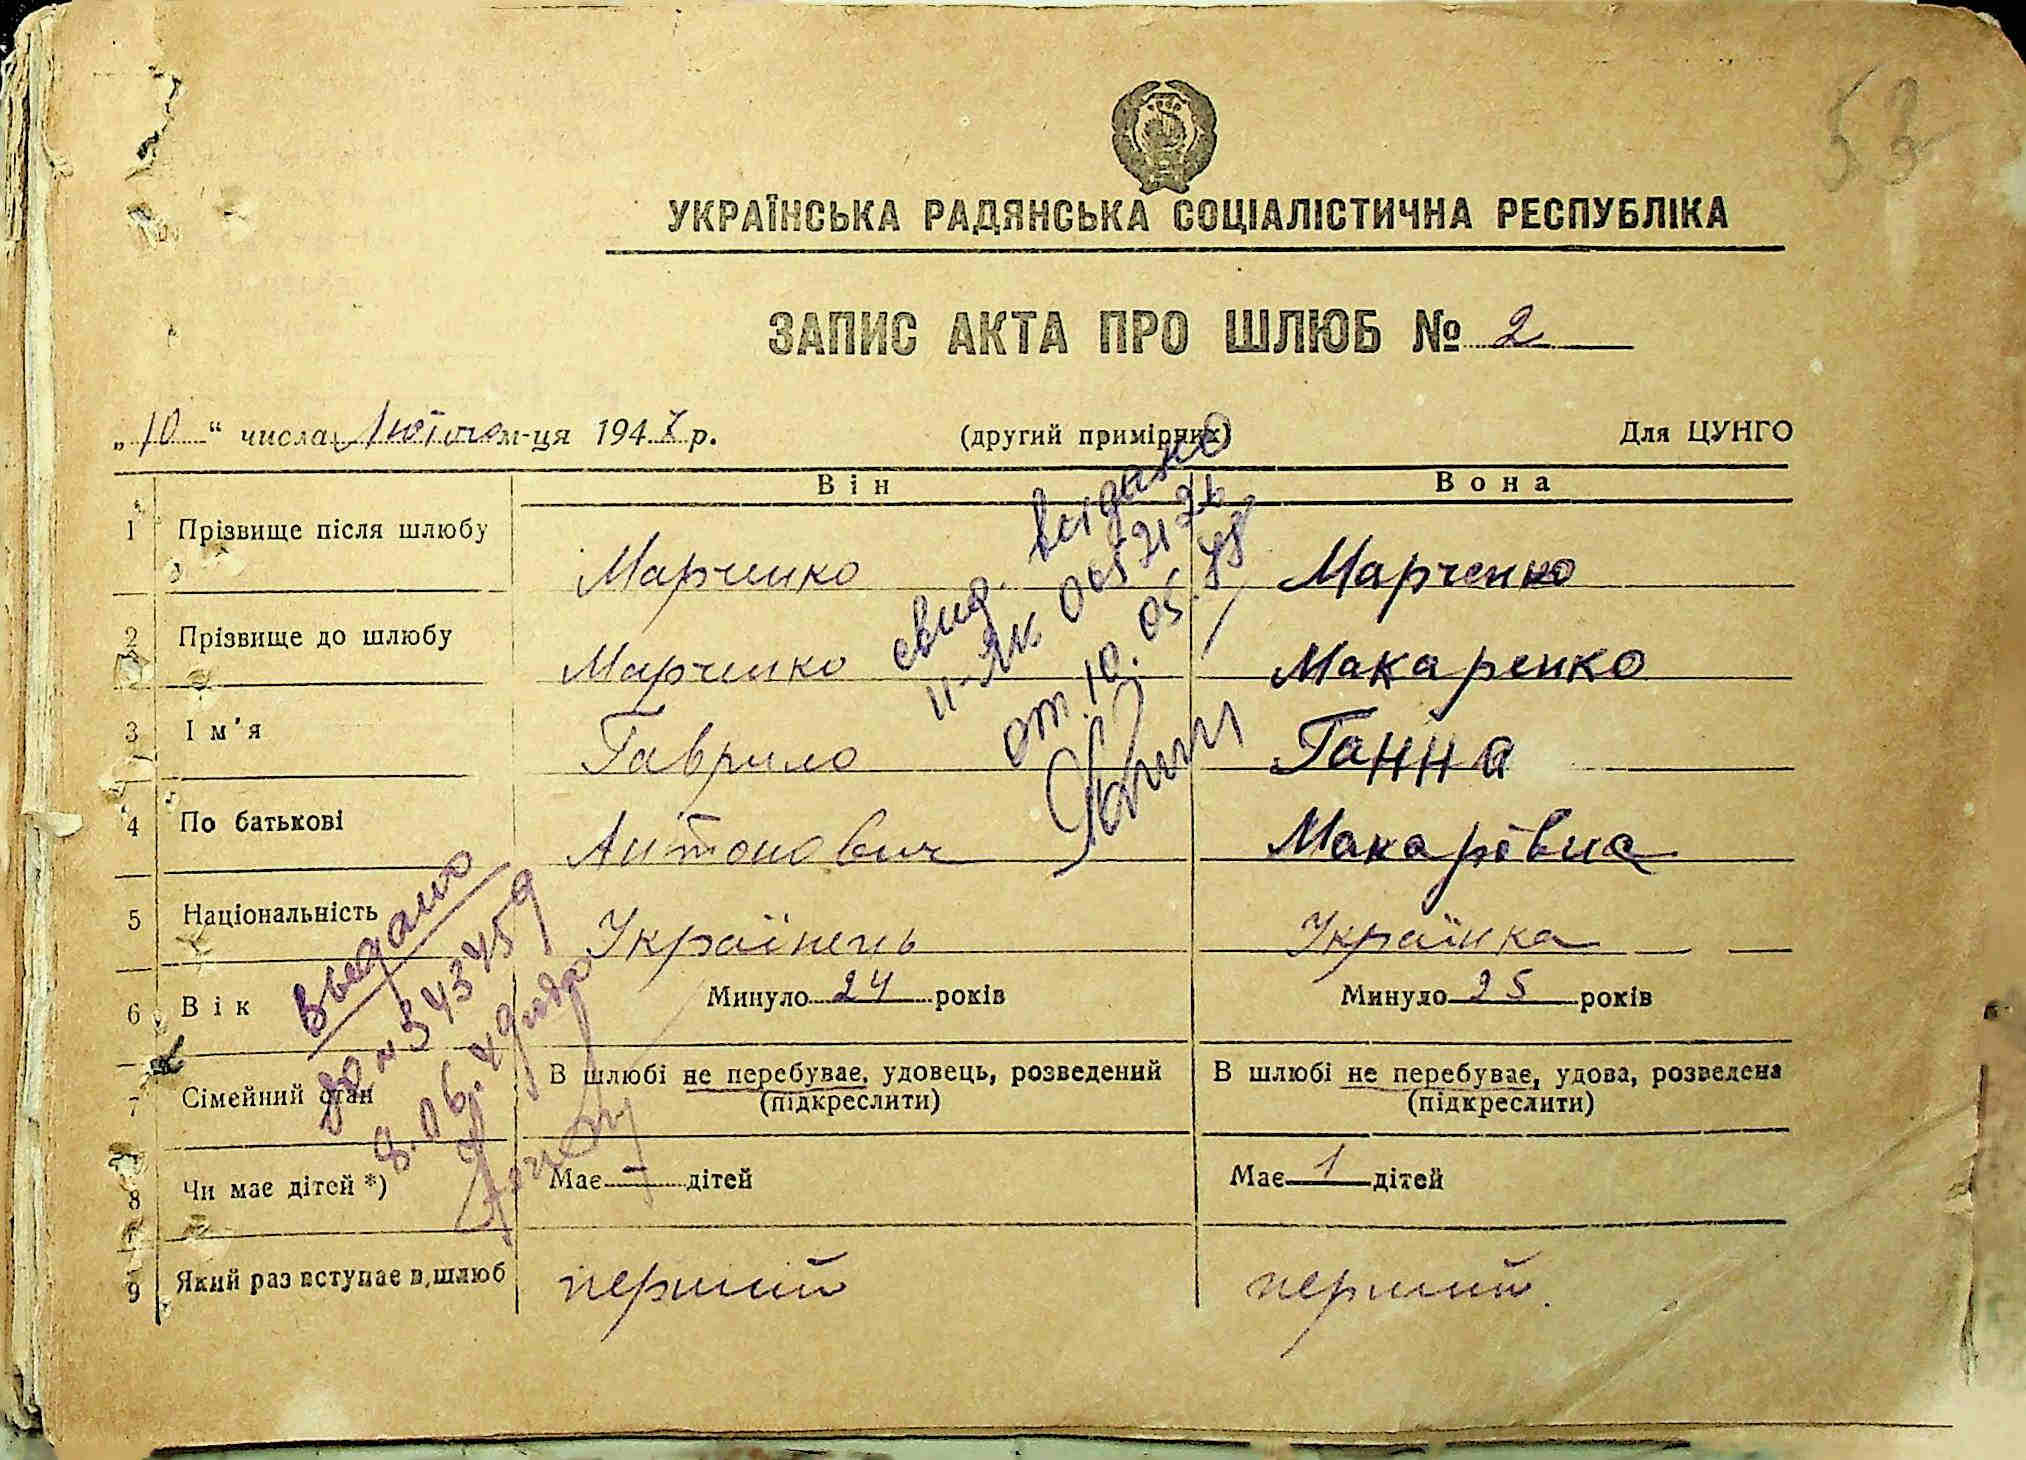 53
УКРАЇНСЬКА РАДЯНСЬКА СОЦІАЛІСТИЧНА РЕСПУБЛІКА
ЗАПИС АКТА ПРО ШЛЮБ № 2
„10“ числа Лютого м-ця 1947 р. (другий примірник) Для ЦУНГО
Він Вона
1 Прізвище після шлюбу Марченко Марченко
2 Прізвище до шлюбу Марченко Макаренко
3 Ім'я Гаврило Ганна
4 По батькові Антонович Макарівна
5 Національність Українець Українка
6 Вік Минуло 24 років Минуло 25 років
7 Сімейний стан В шлюбі не перебуває, удовець, розведений (підкреслити) В шлюбі не перебуває, удова, розведена (підкреслити)
8 Чи має дітей *) Має — дітей Має 1 дітей
9 Який раз вступає в шлюб перший перший
свид. видано
от 10.05.88
выдано